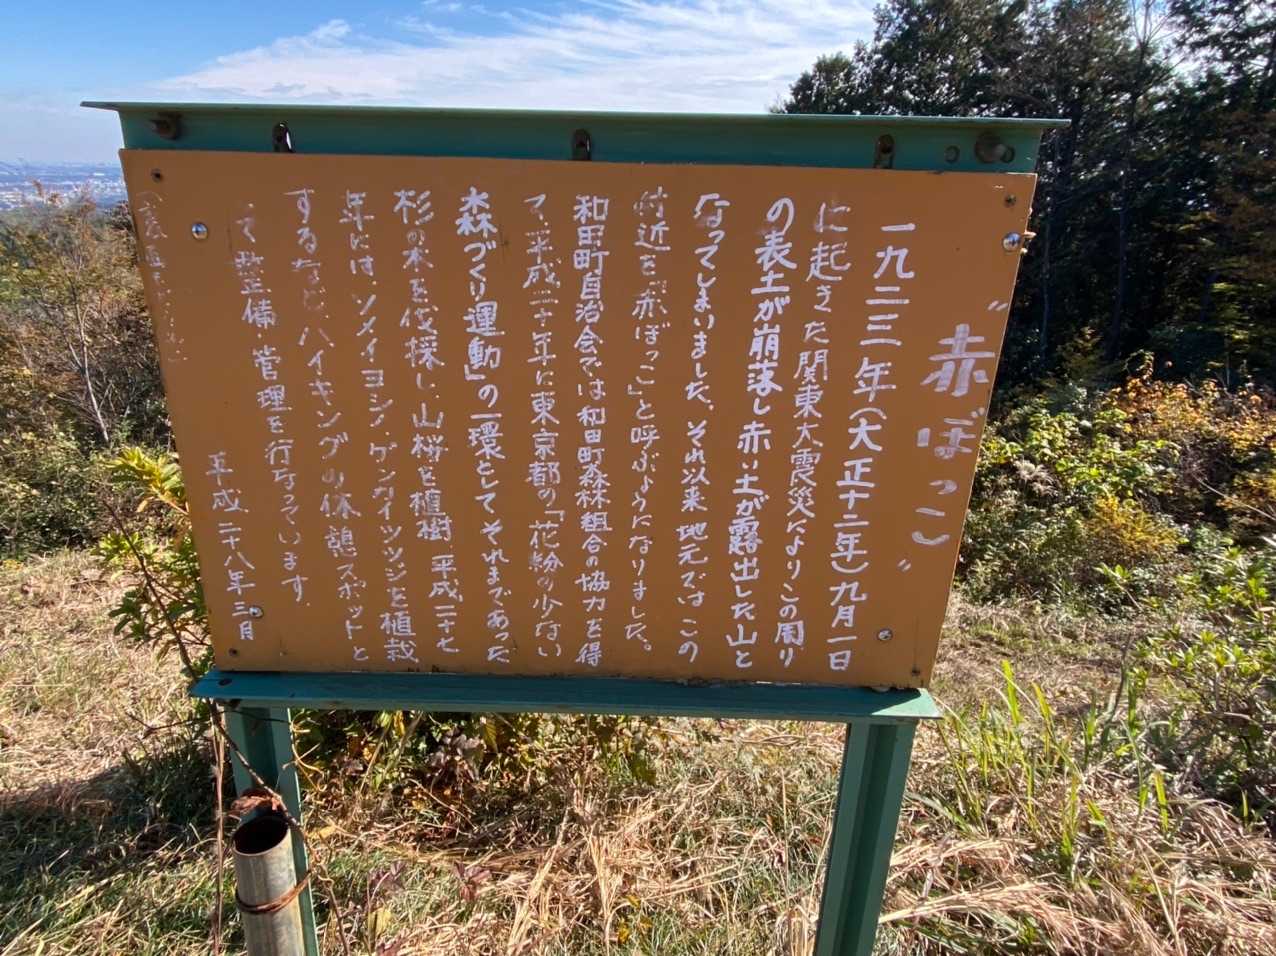 ”赤ぼっこ”
一九二三年(大正十二年)九月一日
に起きた関東大震災によりこの周り
の表土が崩落し赤い土が露出した山と
なってしまいました。それ以来地元ではこの
付近を「赤ぼっこ」と呼ぶようになりました。
和田町自治会では和田町森林組合の協力を得
て、平成二十年に東京都の「花粉の少ない
森づくり運動」の一環としてそれまであった
杉の木を伐採し、山桜を植樹、平成二十七
年には、ソメイヨシノ・ゲンカイツツジを植栽
するなど、ハイキングの休憩スポットと
して整備・管理を行なっています。
平成二十八年三月